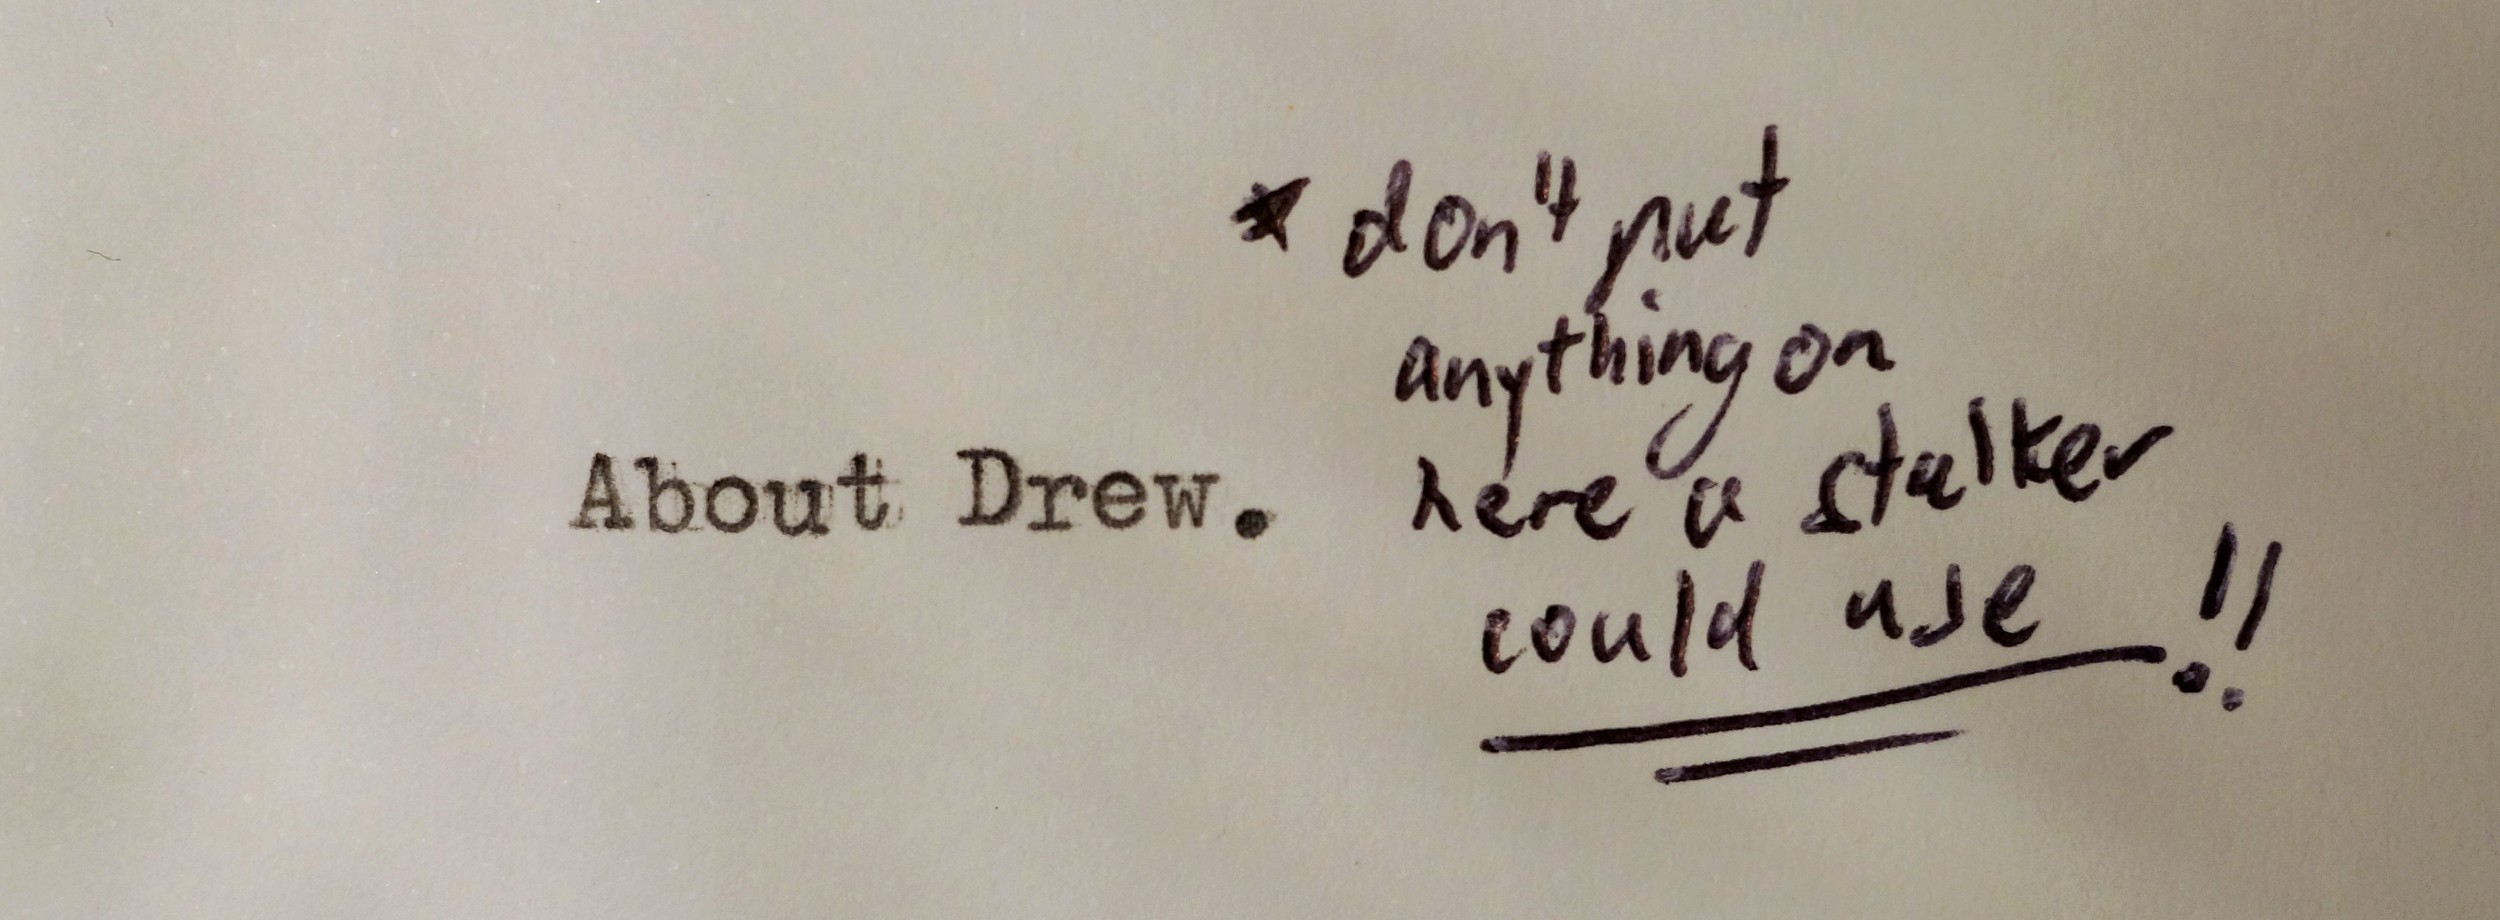 About Drew.
* don't put
anything on
here a stalker
could use!!